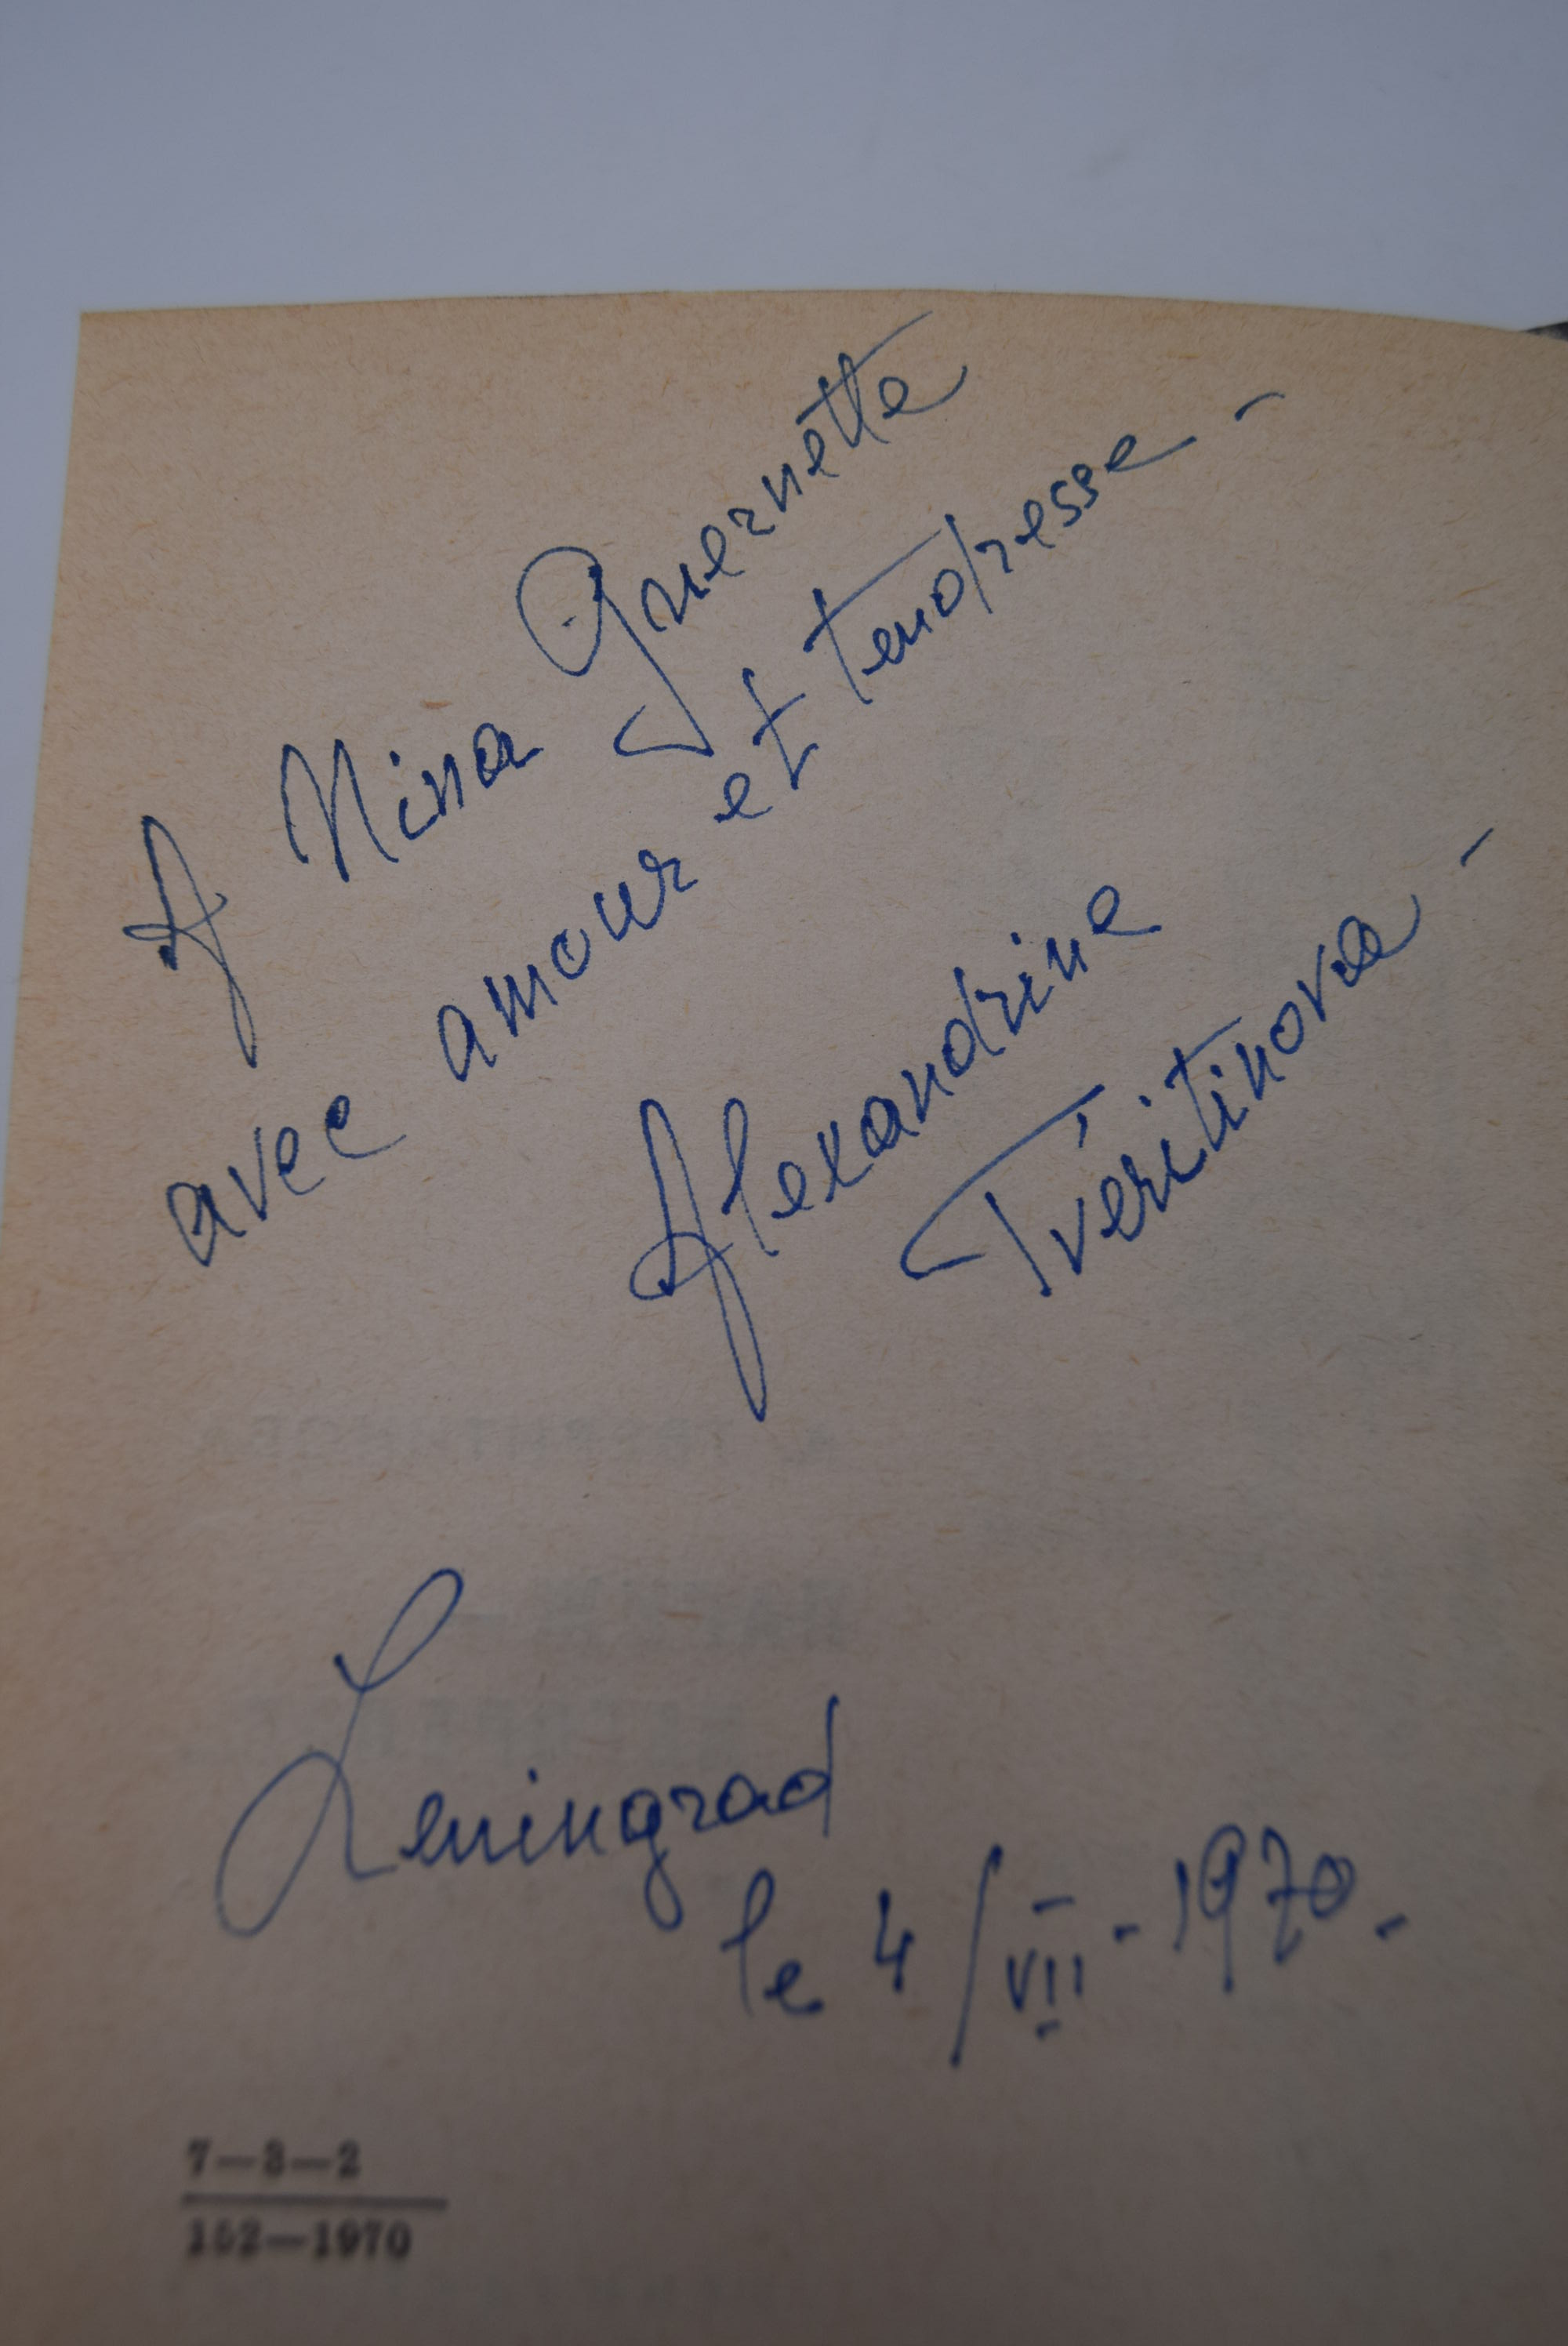 A Nina Guernette
avec amour et tendresse -
Alexandrine
Tvéritinova -
Leningrad
le 4/VII - 1970.
7—3—2
152—1970